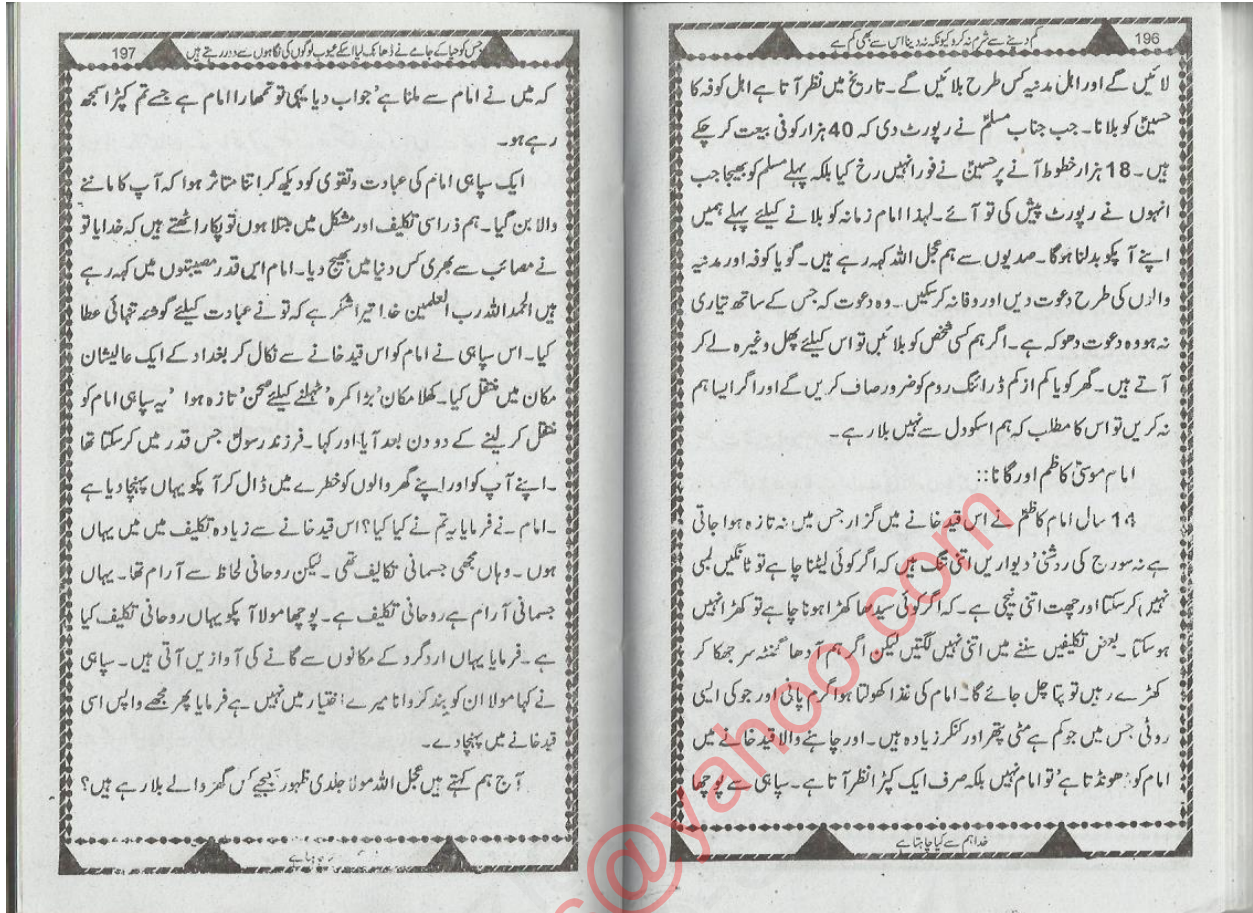 196
کم دینے سے شرم نہ کرو کیونکہ نہ دینا اس سے بھی کم ہے
لائیں گے اور اہل مدنیہ کس طرح بلائیں گے۔ تاریخ میں نظر آتا ہے اہل کوفہ کا
حسینؑ کو بلانا۔ جب جناب مسلمؑ نے رپورٹ دی کہ 40 ہزار کوفی بیعت کر چکے
ہیں۔ 18 ہزار خطوط آنے پر حسینؑ نے فورا نہیں رخ کیا بلکہ پہلے مسلم کو بھیجا جب
انہوں نے رپورٹ پیش کی تو آئے۔ لہذا امام زمانہ کو بلانے کیلئے پہلے ہمیں
اپنے آپکو بدلنا ہوگا۔ صدیوں سے ہم عجل اللہ کہہ رہے ہیں۔ گویا کوفہ اور مدنیہ
والوں کی طرح دعوت دیں اور وفا نہ کرسکیں۔ وہ دعوت کہ جس کے ساتھ تیاری
نہ ہو وہ دعوت دھوکہ ہے۔ اگر ہم کسی شخص کو بلائیں تو اس کیلئے پھل وغیرہ لے کر
آتے ہیں۔ گھر کو یا کم از کم ڈرائنگ روم کو ضرور صاف کریں گے اور اگر ایسا ہم
نہ کریں تو اس کا مطلب کہ ہم اسکو دل سے نہیں بلا رہے۔
امام موسیٰ کاظم اور گانا::
14 سال امام کاظمؑ نے اس قید خانے میں گزار جس میں نہ تازہ ہوا جاتی
ہے نہ سورج کی روشنی' دیواریں اتنی تنگ ہیں کہ اگر کوئی لیٹنا چاہے تو ٹانگیں لمبی
نہیں کرسکتا اور چھت اتنی نیچی ہے۔ کہ اگر کوئی سیدھا کھڑا ہونا چاہے تو کھڑا نہیں
ہوسکتا۔ بعض تکلیفیں سننے میں اتنی نہیں لگتیں لیکن اگر ہم آدھا گنٹہ سر جھکا کر
کھڑے رہیں تو پتا چل جائے گا۔ امام کی غذا کھولتا ہوا گرم پانی اور جو کی ایسی
روٹی جس میں جو کم ہے مٹی پتھر اور کنکر زیادہ ہیں۔ اور چاہنے والا قید خانے میں
امام کو ڈھونڈتا ہے' تو امام نہیں بلکہ صرف ایک کپڑا نظر آتا ہے۔ سپاہی سے پوچھا
خدا ہم سے کیا چاہتا ہے
197
جس کو حیا کے جامے نے ڈھانک لیا اسکے عیوب لوگوں کی نگاہوں سے دور رہتے ہیں
کہ میں نے امام سے ملنا ہے' جواب دیا یہی تو تمھارا امام ہے جسے تم کپڑا سمجھ
رہے ہو۔
ایک سپاہی امام کی عبادت وتقوی کو دیکھ کر اتنا متاثر ہوا کہ آپ کا ماننے
والا بن گیا۔ ہم ذرا سی تکلیف اور مشکل میں مبتلا ہوں تو پکار اٹھتے ہیں کہ خدایا تو
نے مصائب سے بھری کس دنیا میں بھیج دیا۔ امام اس قدر مصیبتوں میں کہہ رہے
ہیں الحمد اللہ رب العلمین خدا تیرا شکر ہے کہ تو نے عبادت کیلئے گوشہ تنہائی عطا
کیا۔ اس سپاہی نے امام کو اس قید خانے سے نکال کر بغداد کے ایک عالیشان
مکان میں منتقل کیا۔ کھلا مکان' بڑا کمرہ' ٹہلنے کیلئے صحن' تازہ ہوا ' یہ سپاہی امام کو
منتقل کر لینے کے دو دن بعد آیا اور کہا۔ فرزند رسولؐ جس قدر میں کرسکتا تھا
۔اپنے آپ کو اور اپنے گھر والوں کو خطرے میں ڈال کر آپکو یہاں پہنچا دیا ہے
۔امام نے فرمایا یہ تم نے کیا کیا؟ اس قید خانے سے زیادہ تکلیف میں میں یہاں
ہوں۔ وہاں مجھی جسمانی تکالیف تھی۔ لیکن روحانی لحاظ سے آرام تھا۔ یہاں
جسمانی آرام ہے روحانی تکلیف ہے۔ پوچھا مولا آپکو یہاں روحانی تکلیف کیا
ہے۔ فرمایا یہاں ارد گرد کے مکانوں سے گانے کی آوازیں آتی ہیں۔ سپاہی
نے کہا مولا ان کو بند کروانا میرے اختیار میں نہیں ہے فرمایا پھر مجھے واپس اسی
قید خانے میں پہنچا دے۔
آج ہم کہتے ہیں عجل اللہ مولا جلدی ظہور کیجیے کس گھر والے بلا رہے ہیں؟
@yahoo.com